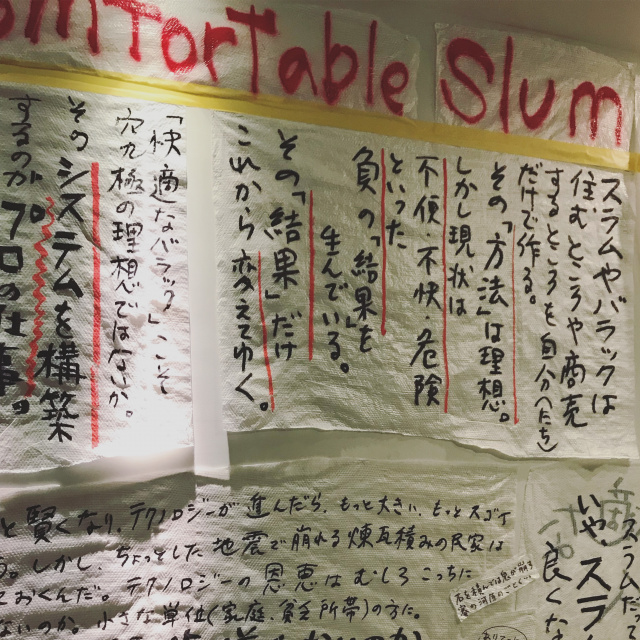 omfortable Slum
スラムやバラックは
住むところや商売
するところを自分(たち)
だけで作る。
その「方法」は理想。
しかし現状は
不便・不快・危険
といった
負の「結果」を
生んでいる。
その「結果」だけ
これから変えてゆく。
「快適なバラック」こそ
究極の理想ではないか。
そのシステムを構築
するのがプロの仕事。
と賢くなり、テクノロジーが進んだら、もっと大きい、もっとスゴイ
。しかし、ちょっとした地震で崩れる煉瓦積みの民家は
おくんだ。テクノロジーの恩恵はむしろこっちに
ないのか。小さな単位(家庭、貧乏所帯)の方に。
スラムだ
いやスラ
良くな